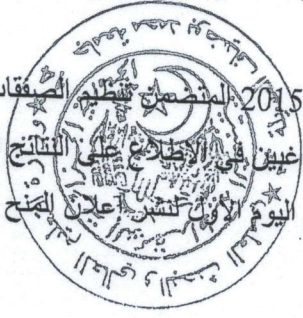 2015 المتضمن تنظيم الصفقات
غبين في الإطلاع على النتائج
اليوم الأول لنشر إعلان المنح
جامعة محمد بوضياف